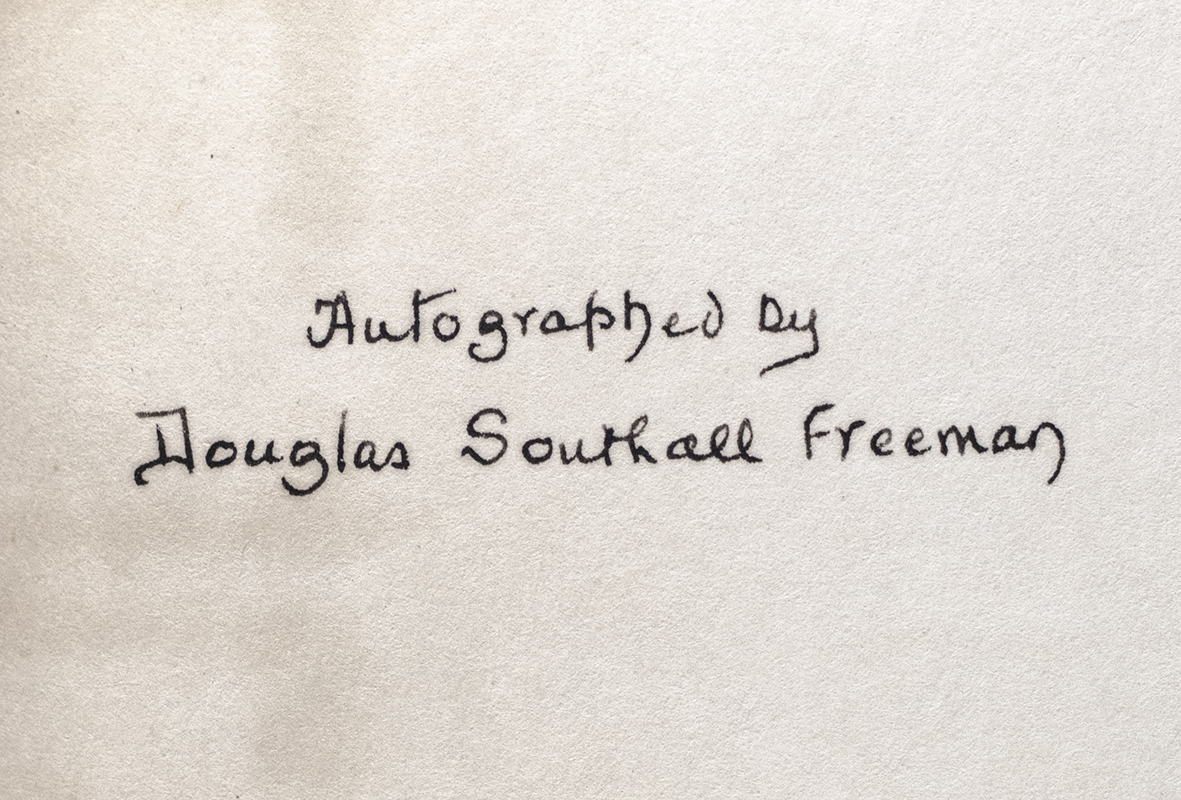 Autographed by
Douglas Southall Freeman